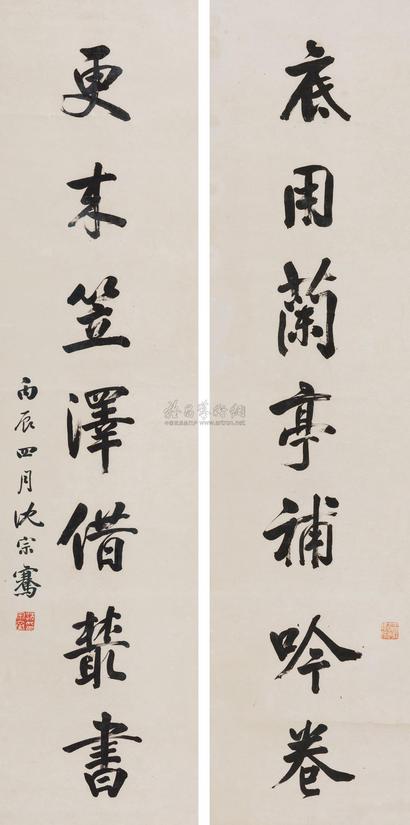 底用蘭亭補吟卷
更来笠澤借叢書
丙辰四月沈宗騫